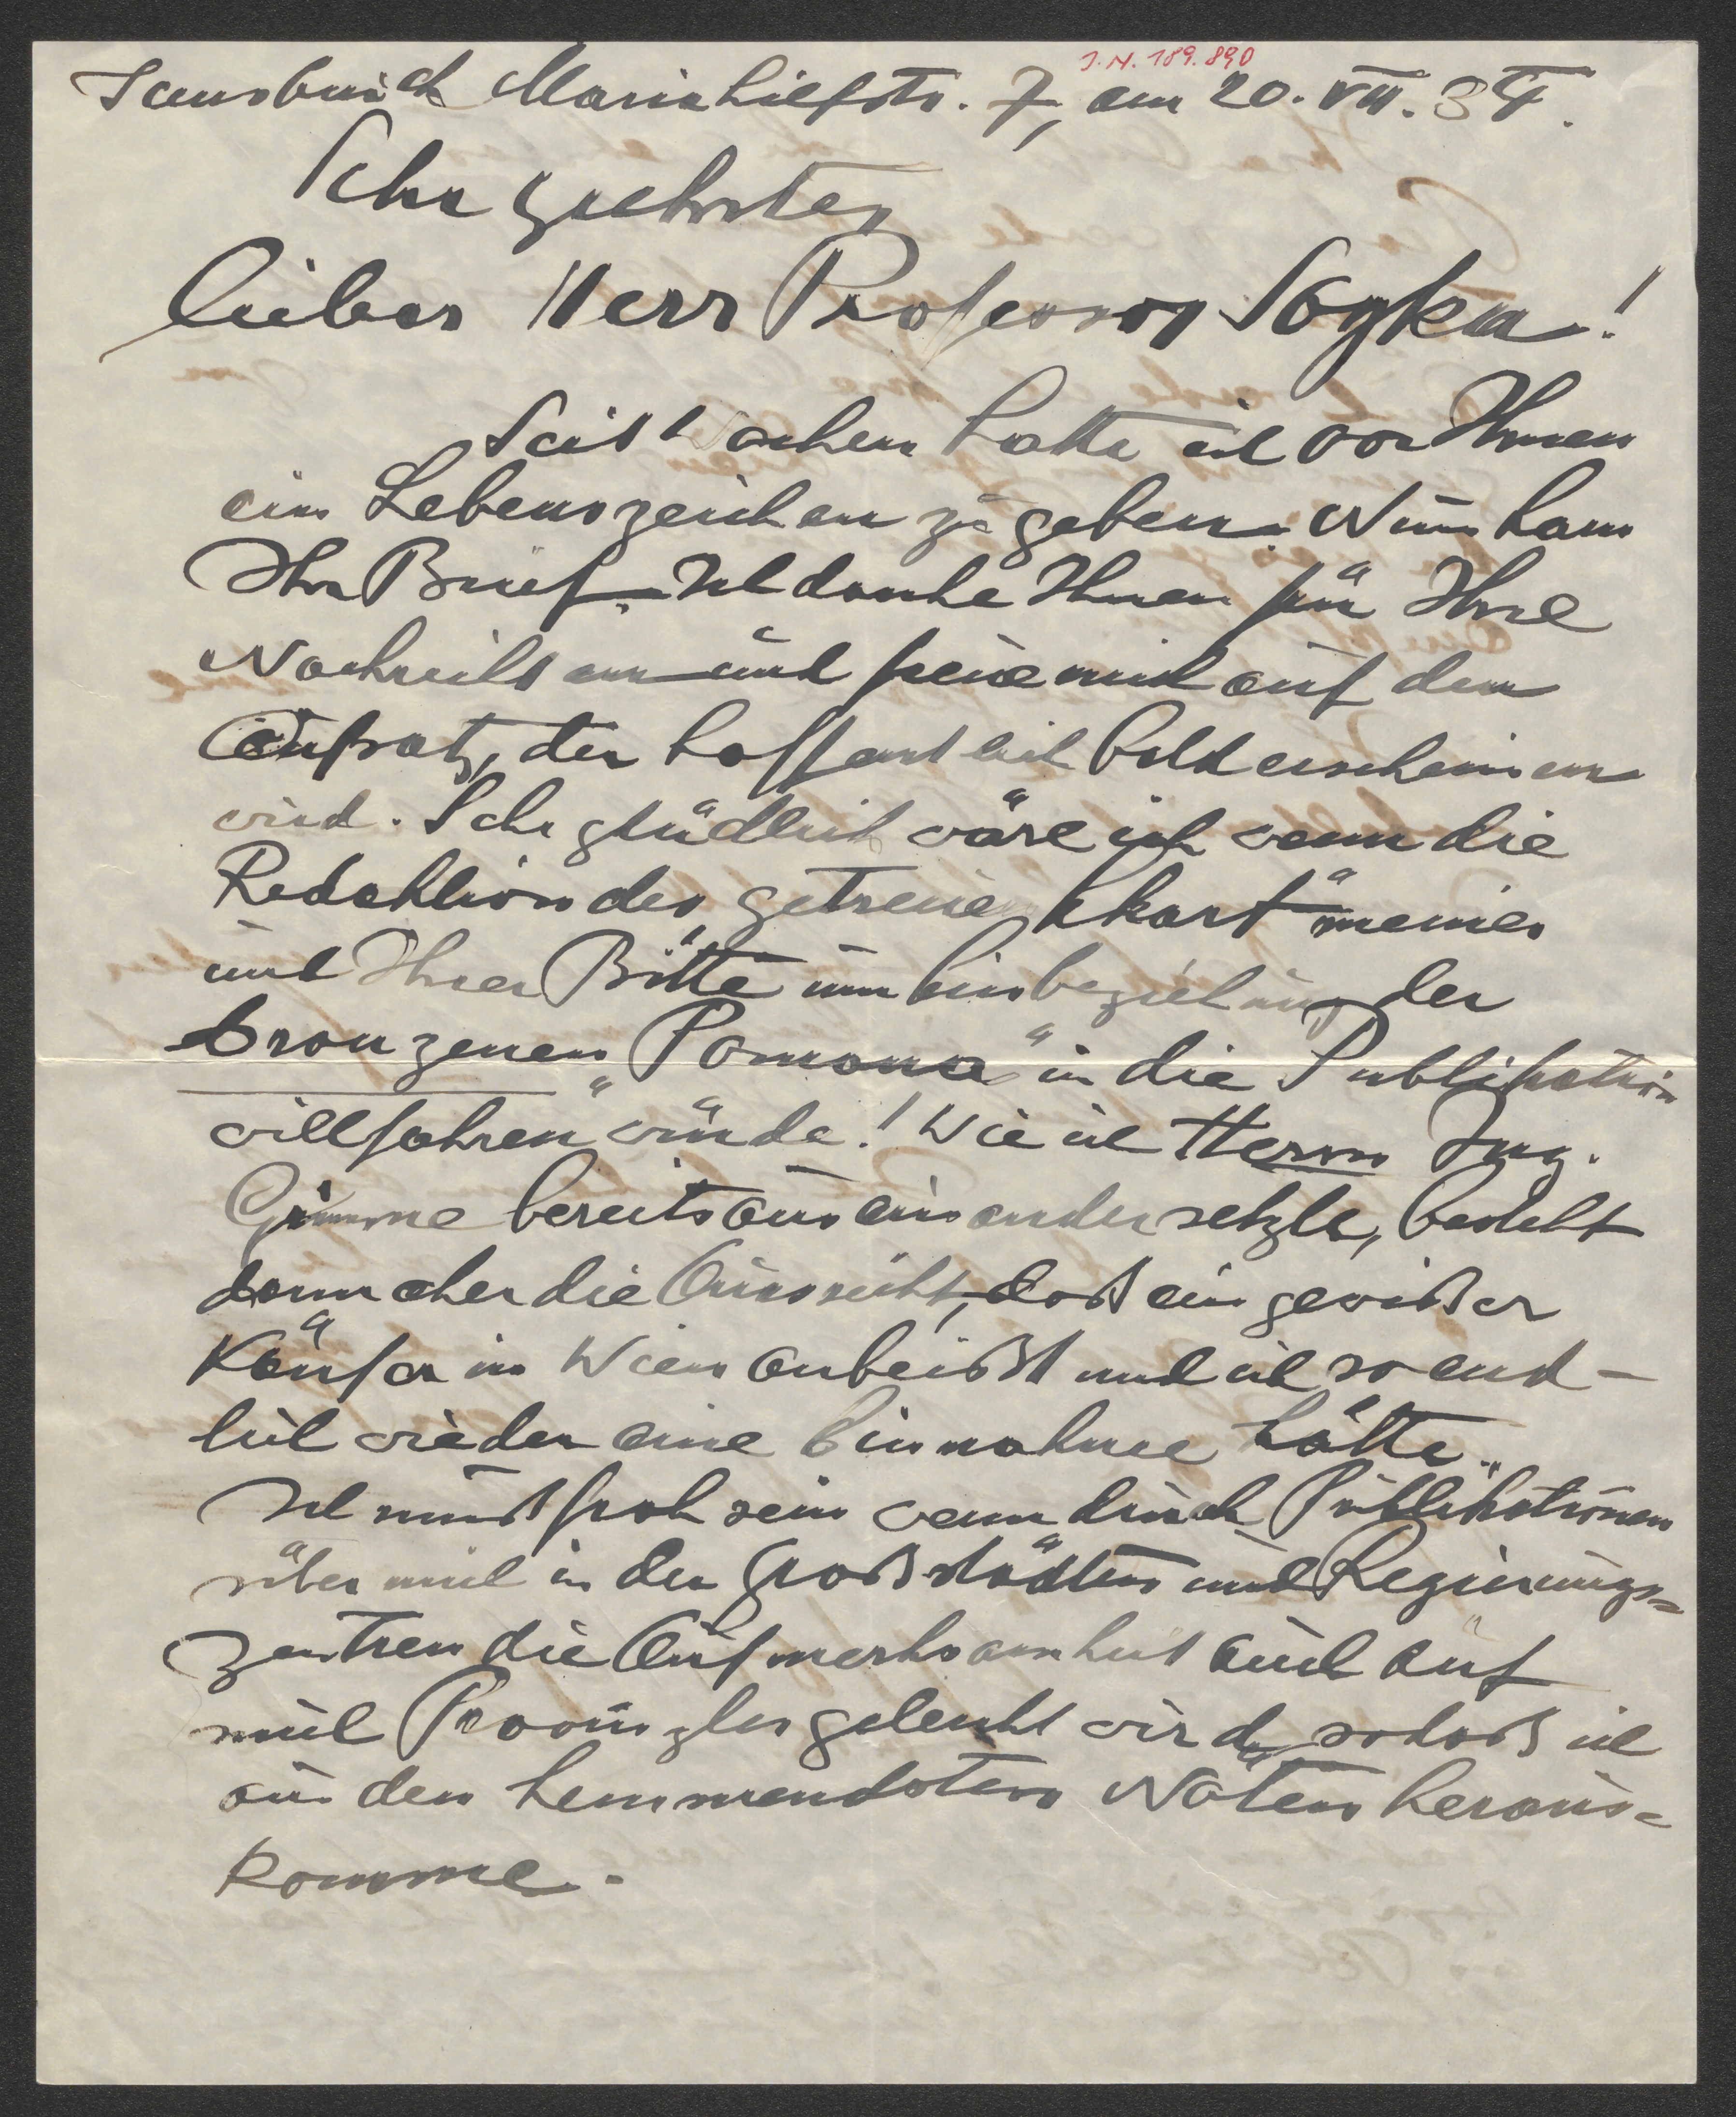 J.N. 189.890
Innsbruck Mariahilfstr. 7, am 20. VII. 34.
Sehr geehrter
lieber Herr Professor
Seit Wochen hatte ich vor Ihnen
ein Lebenszeichen zu geben. Nun kam
Ihr Brief. Ich danke Ihnen für Ihre
Nachrichten und freue mich auf den
Aufsatz, der hoffentlich bald erscheinen
wird. Sehr glücklich wäre ich wenn die
Redaktion des „getreue Ekart“ meiner
und Ihrer Bitte um Einbeziehung der
bronzenen „Pomona“ in die Publikation
„willfahren“ würde! Wie ich Herrn Ing.
bereits auseinander setzte, besteht
dann eher die Aussicht, daß ein gewißer
Käufer in Wien anbeißt und ich so end-
lich wieder eine Einnahme hätte.
Ich muß froh sein wenn durch Publikationen
über mich in den Großstädten und Regierungs-
zentren die Aufmerksamkeit auch auf
mich Provinzler gelenkt wird, sodaß ich
aus den hemmendsten Nöten heraus-
komme.